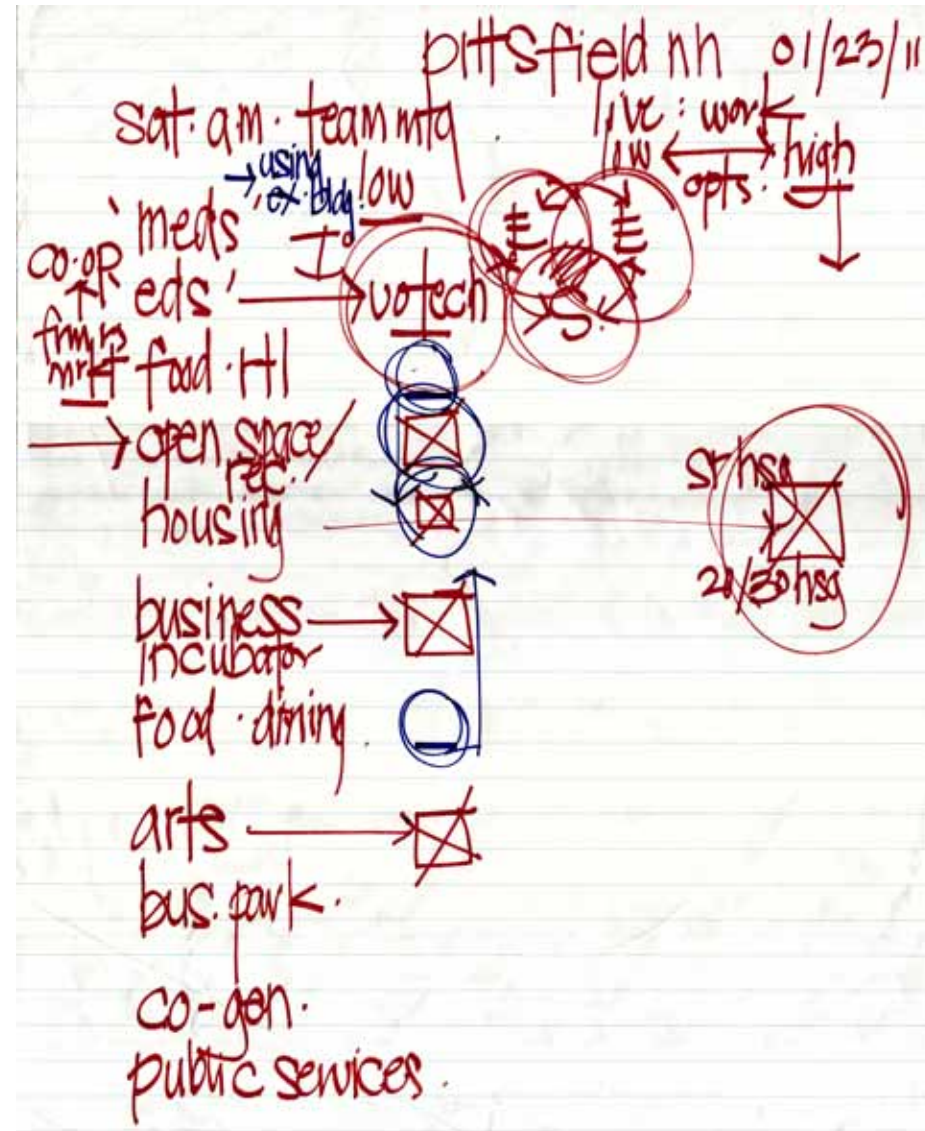 pittsfield nh 01/23/11
sat. am. team mtg
live : work
low opts. high
→ using ex. bldg!
low
'meds
eds' → votech
E E
S.
co-op
frmrs mrkt
food. Htl
→ open space/
rec.
housing
sr hsg
20/30 hsg
business
incubator
food. dining.
arts
bus. park.
co-gen.
public services.